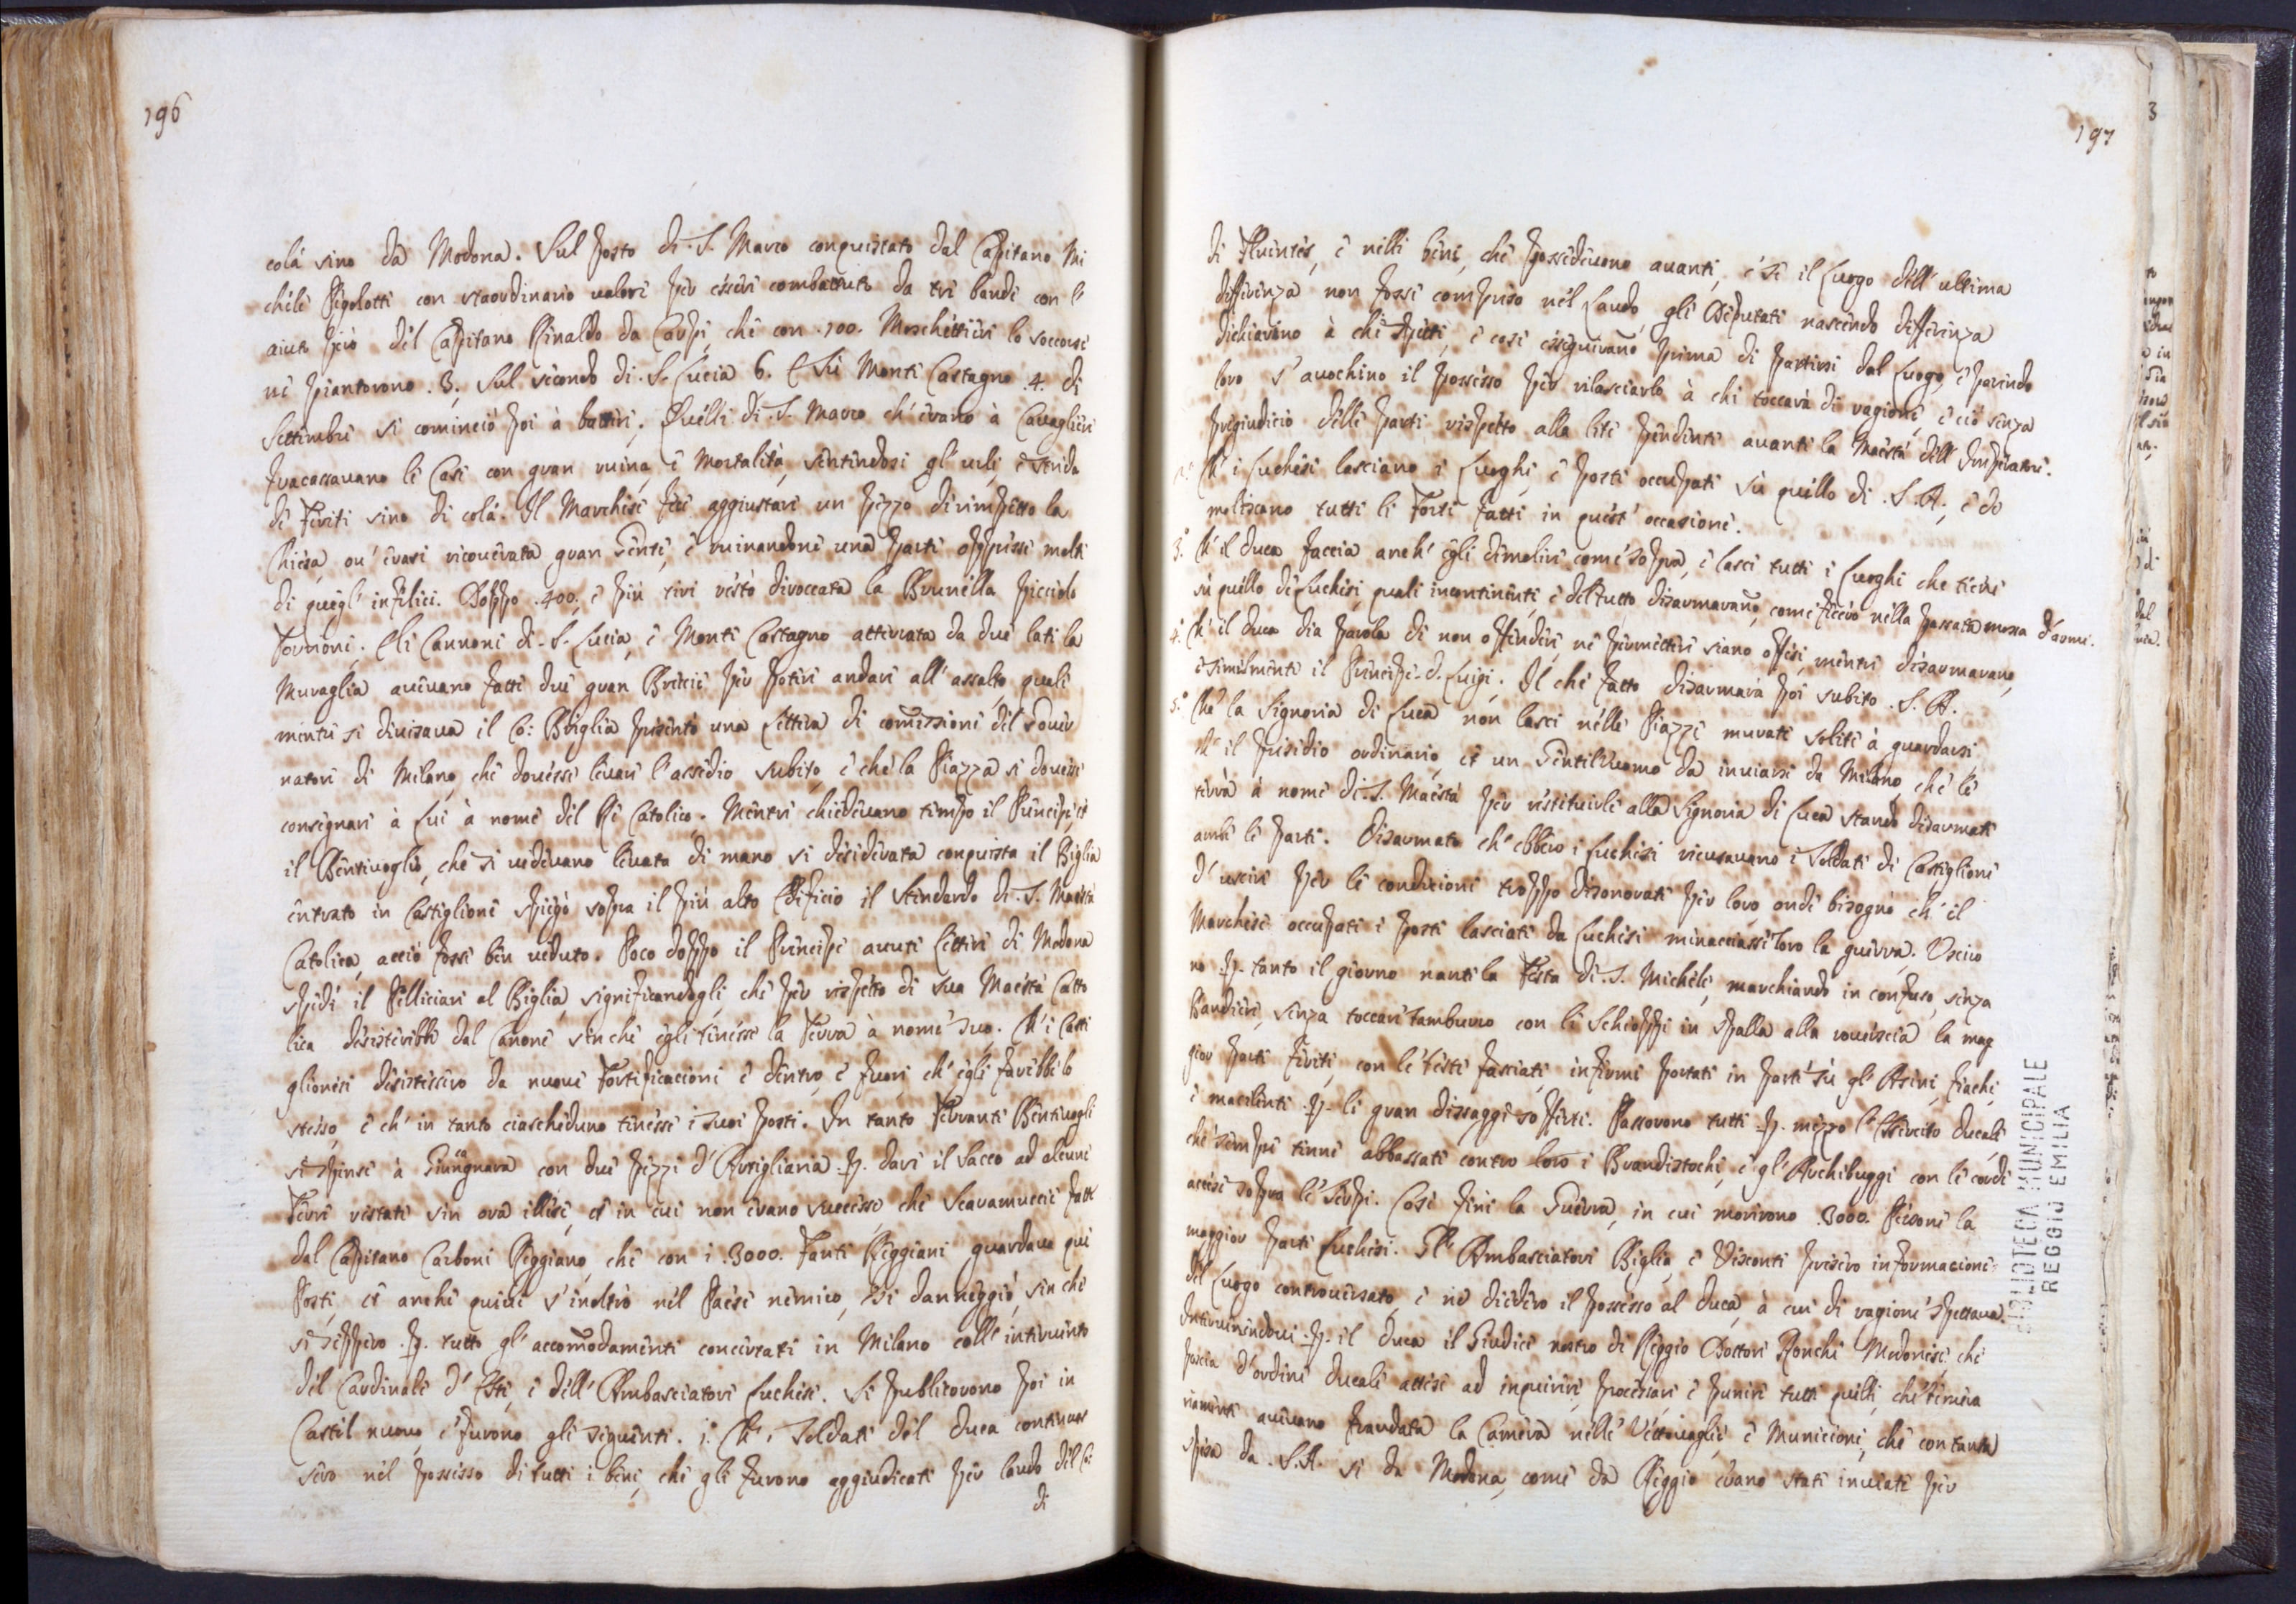 196
colà sino da Modona. Sul posto di S. Marco conquistato dal Capitano Mi
chele Pigolotti con straordinario valore per essere combattuto da tre bande con l'
aiuto però del Capitano Rinaldo da Carpi che con .100. Moschettieri lo soccorse
ne piantorono .3. sul secondo di .S. Lucia 6. e su Monte Castagno .4. di
Settembre si cominciò poi à battere. Quelli di S. Marco ch'erano à Cavagliere
fracassavano le Case con gran ruina, e Mortalità, sentendosi gl'urli, e strida
de feriti sino di colà. Il Marchese fece aggiustare un pezzo dirimpetto la
Chiesa, ov'erasi ricoverata gran Gente, e ruinandone una parte oppresse molti
di quegl'infelici. Doppo .400. e più tiri restò diroccata la Brunella picciolo
Torrione. Gli Cannoni di .S. Lucia, e Monte Castagno atterrata da due lati la
Muraglia avevano fatte due gran Breccie per potere andare all'assalto quale
mentre si divisava il Co: Biglia presentò una Lettera di comissione del Gover
natore di Milano, che dovesse levare l'assedio subito, e che la Piazza si dovesse
consignare à Lui à nome del Rè Catolico. Mentre chiedevano tempo il Principe, et
il Bentivoglio, che si vedevano levata di mano si desiderata conquista il Biglia
entrato in Castiglione spiegò sopra il più alto Edificio il Stendardo di .S. Maestà
Catolica, acciò fosse ben veduto. Poco doppo il Principe avute Lettere di Modona
spedì il Pelliciari al Biglia, significandogli, che per rispetto di sua Maestà Catto
lica desisterebbe dal Canone sin che egli tenesse la Terra à nome suo. Ch'i Casti
glionesi desistessero da nuove Fortificacioni e dentro, e fuori, ch'egli farebbe lo
stesso, e ch'in tanto ciascheduno tenesse i suoi posti. In tanto Ferrante Bentivogli
si spinse à Giuncugnara con due pezzi d'Artigliaria .p. dare il Sacco ad alcune
Terre restate sin ora illese, et in cui non erano successe, che Scaramuccie fatte
dal Capitano Carboni Reggiano, che con i .3000. Fanti Reggiani guardava que
Posti, et anche quivi s'inoltrò nel Paese nemico, e si danneggiò, sin che
si seppero .p. tutto gl'accomodamenti concertati in Milano coll'intervento
del Cardinale d'Este, e dell'Ambasciatore Luchese. Si publicorono poi in
Castel nuovo, e furono gli seguenti. 1. Ch'i Soldati del Duca continuas
sero nel possesso di tutti i beni, che gli furono aggiudicati per laudo del Co:
di
197
di Fluintes, e nelli beni, che possedevono avanti, e se il Luogo dell'ultima
differenza non fosse compreso nel Laudo, gli Deputati nascendo differenza
dichiarino à chi spetti, e così esseguirano prima di partirsi dal Luogo, e parendo
loro s'avochino il possesso per rilasciarlo à chi toccarà di ragione, e ciò senza
pregiudicio delle parti rispetto alla lite pendente avanti la Maestà dell'Imperatore.
2. Ch'i Luchesi lasciano i Luoghi, e posti occupati sù quello di .S.A., e de
moliscano tutti li Forti fatti in quest'occasione.
3. Ch'il Duca faccia anch'egli demolire come sopra, e lasci tutti i Luoghi che tiene
sù quello de Luchesi, quali incontinente e del tutto disarmarano, come fecero nella passata mossa d'armi.
4. Ch'il Duca dia parola di non offendere, ne permettere siano offesi, mentre disarmarano,
e similmente il Principe .d. Luigi. Il che fatto disarmarà poi subito .S.A.
5. Che la Signoria di Luca non lasci nelle Piazze murate solite à guardarsi,
ch'il presidio ordinario, et un Gentilhuomo da inviarsi da Milano che le
terrà à nome di .S. Maestà per restituirle alla Signoria di Luca stando disarmate
ambe le parti. Disarmato ch'ebbero i Luchesi ricusavano i Soldati di Castiglione
d'uscire per le condicioni troppo disonorate per loro, onde bisognò ch'il
Marchese occupati i posti lasciati da Luchesi minacciasse loro la guerra. Usciro
no .p. tanto il giorno nanti la Festa di .S. Michele, marchiando in confuso, senza
Bandiere, senza toccare Tamburro con li Schioppi in spalla alla roverscia la mag
gior parte feriti, con le teste fasciate, infermi portati in parte sù gl'Asini, fiachi,
e macilenti .p. li gran dissaggi sofferti. Passorono tutti .p. mezzo l'Essercito Ducale
che sempre tenne abbassati contro loro i Brandistochi, e gl'Archibuggi con le corde
accese sopra le serpi. Così finì la Guerra, in cui morirono .3000. Persone la
maggior parte Luchesi. Gl'Ambasciatori Biglia, e Visconti presero informacione
del Luogo controversato, e ne diedero il possesso al Duca, à cui di ragione spettava
Intervenendovi .p. il Duca il Giudice nostro di Reggio Dottore Ronchi Modonese che
poscia d'ordine Ducale attese ad inquirire, processare, e punire tutti quelli, che temera
riamente avevano fraudata la Camera nelle Vettovaglie, e Municioni, che con tanta
spesa da .S.A. si da Modona, come da Reggio erano stati inviate per
BIBLIOTECA MUNICIPALE
REGGIO EMILIA